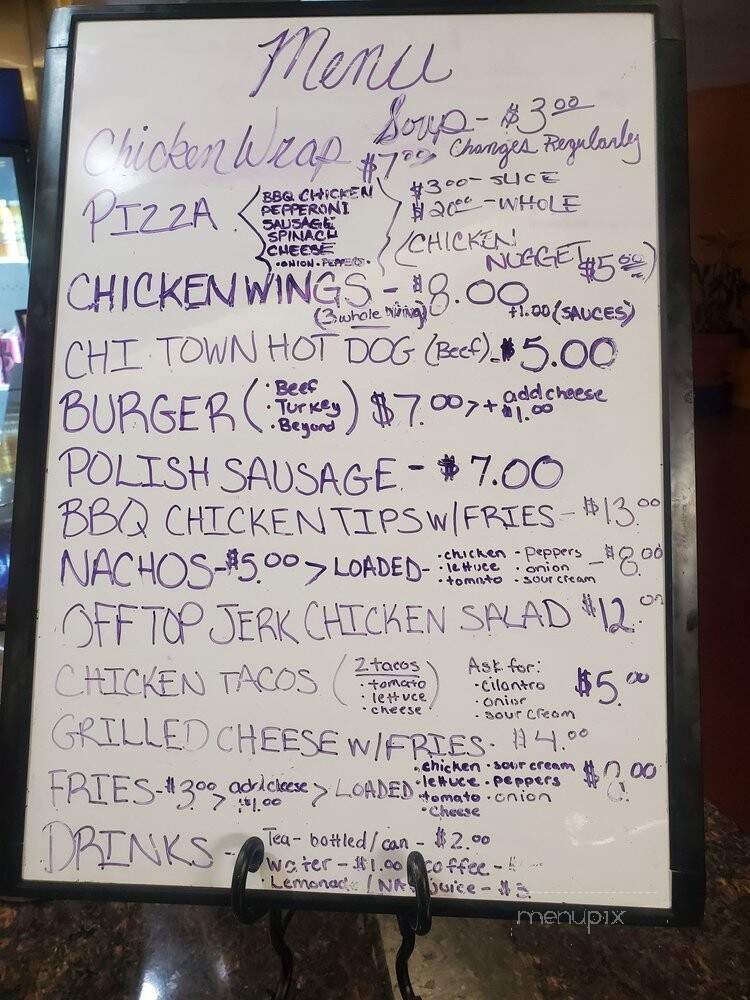 Menu
Soup - $3.00
Chicken Wrap $7.00 Changes Regularly
PIZZA
BBQ CHICKEN
PEPPERONI
SAUSAGE
SPINACH
CHEESE
• ONION • PEPPERS •
$3.00 - SLICE
$20.00 - WHOLE
(CHICKEN
NUGGET $5.00)
CHICKEN WINGS - $8.00
(3 whole wing) +1.00 (SAUCES)
CHI TOWN HOT DOG (Beef) - $5.00
BURGER ( • Beef • Turkey • Beyond ) $7.00 > + add cheese $1.00
POLISH SAUSAGE - $7.00
BBQ CHICKEN TIPS W/FRIES - $13.00
NACHOS - $5.00 > LOADED - • chicken • peppers - $8.00
• lettuce • onion
• tomato • sour cream
OFF TOP JERK CHICKEN SALAD $12.00
CHICKEN TACOS ( 2 tacos • tomato • lettuce • cheese ) Ask for: • cilantro • onion • sour cream $5.00
GRILLED CHEESE W/FRIES - $4.00
FRIES - $3.00 > add cheese $1.00 > LOADED
• chicken • sour cream
• lettuce • peppers
• tomato • onion
• cheese
DRINKS -
Tea - bottled/can - $2.00
• Water - $1.00 coffee -
• Lemonade / juice - $
menupix